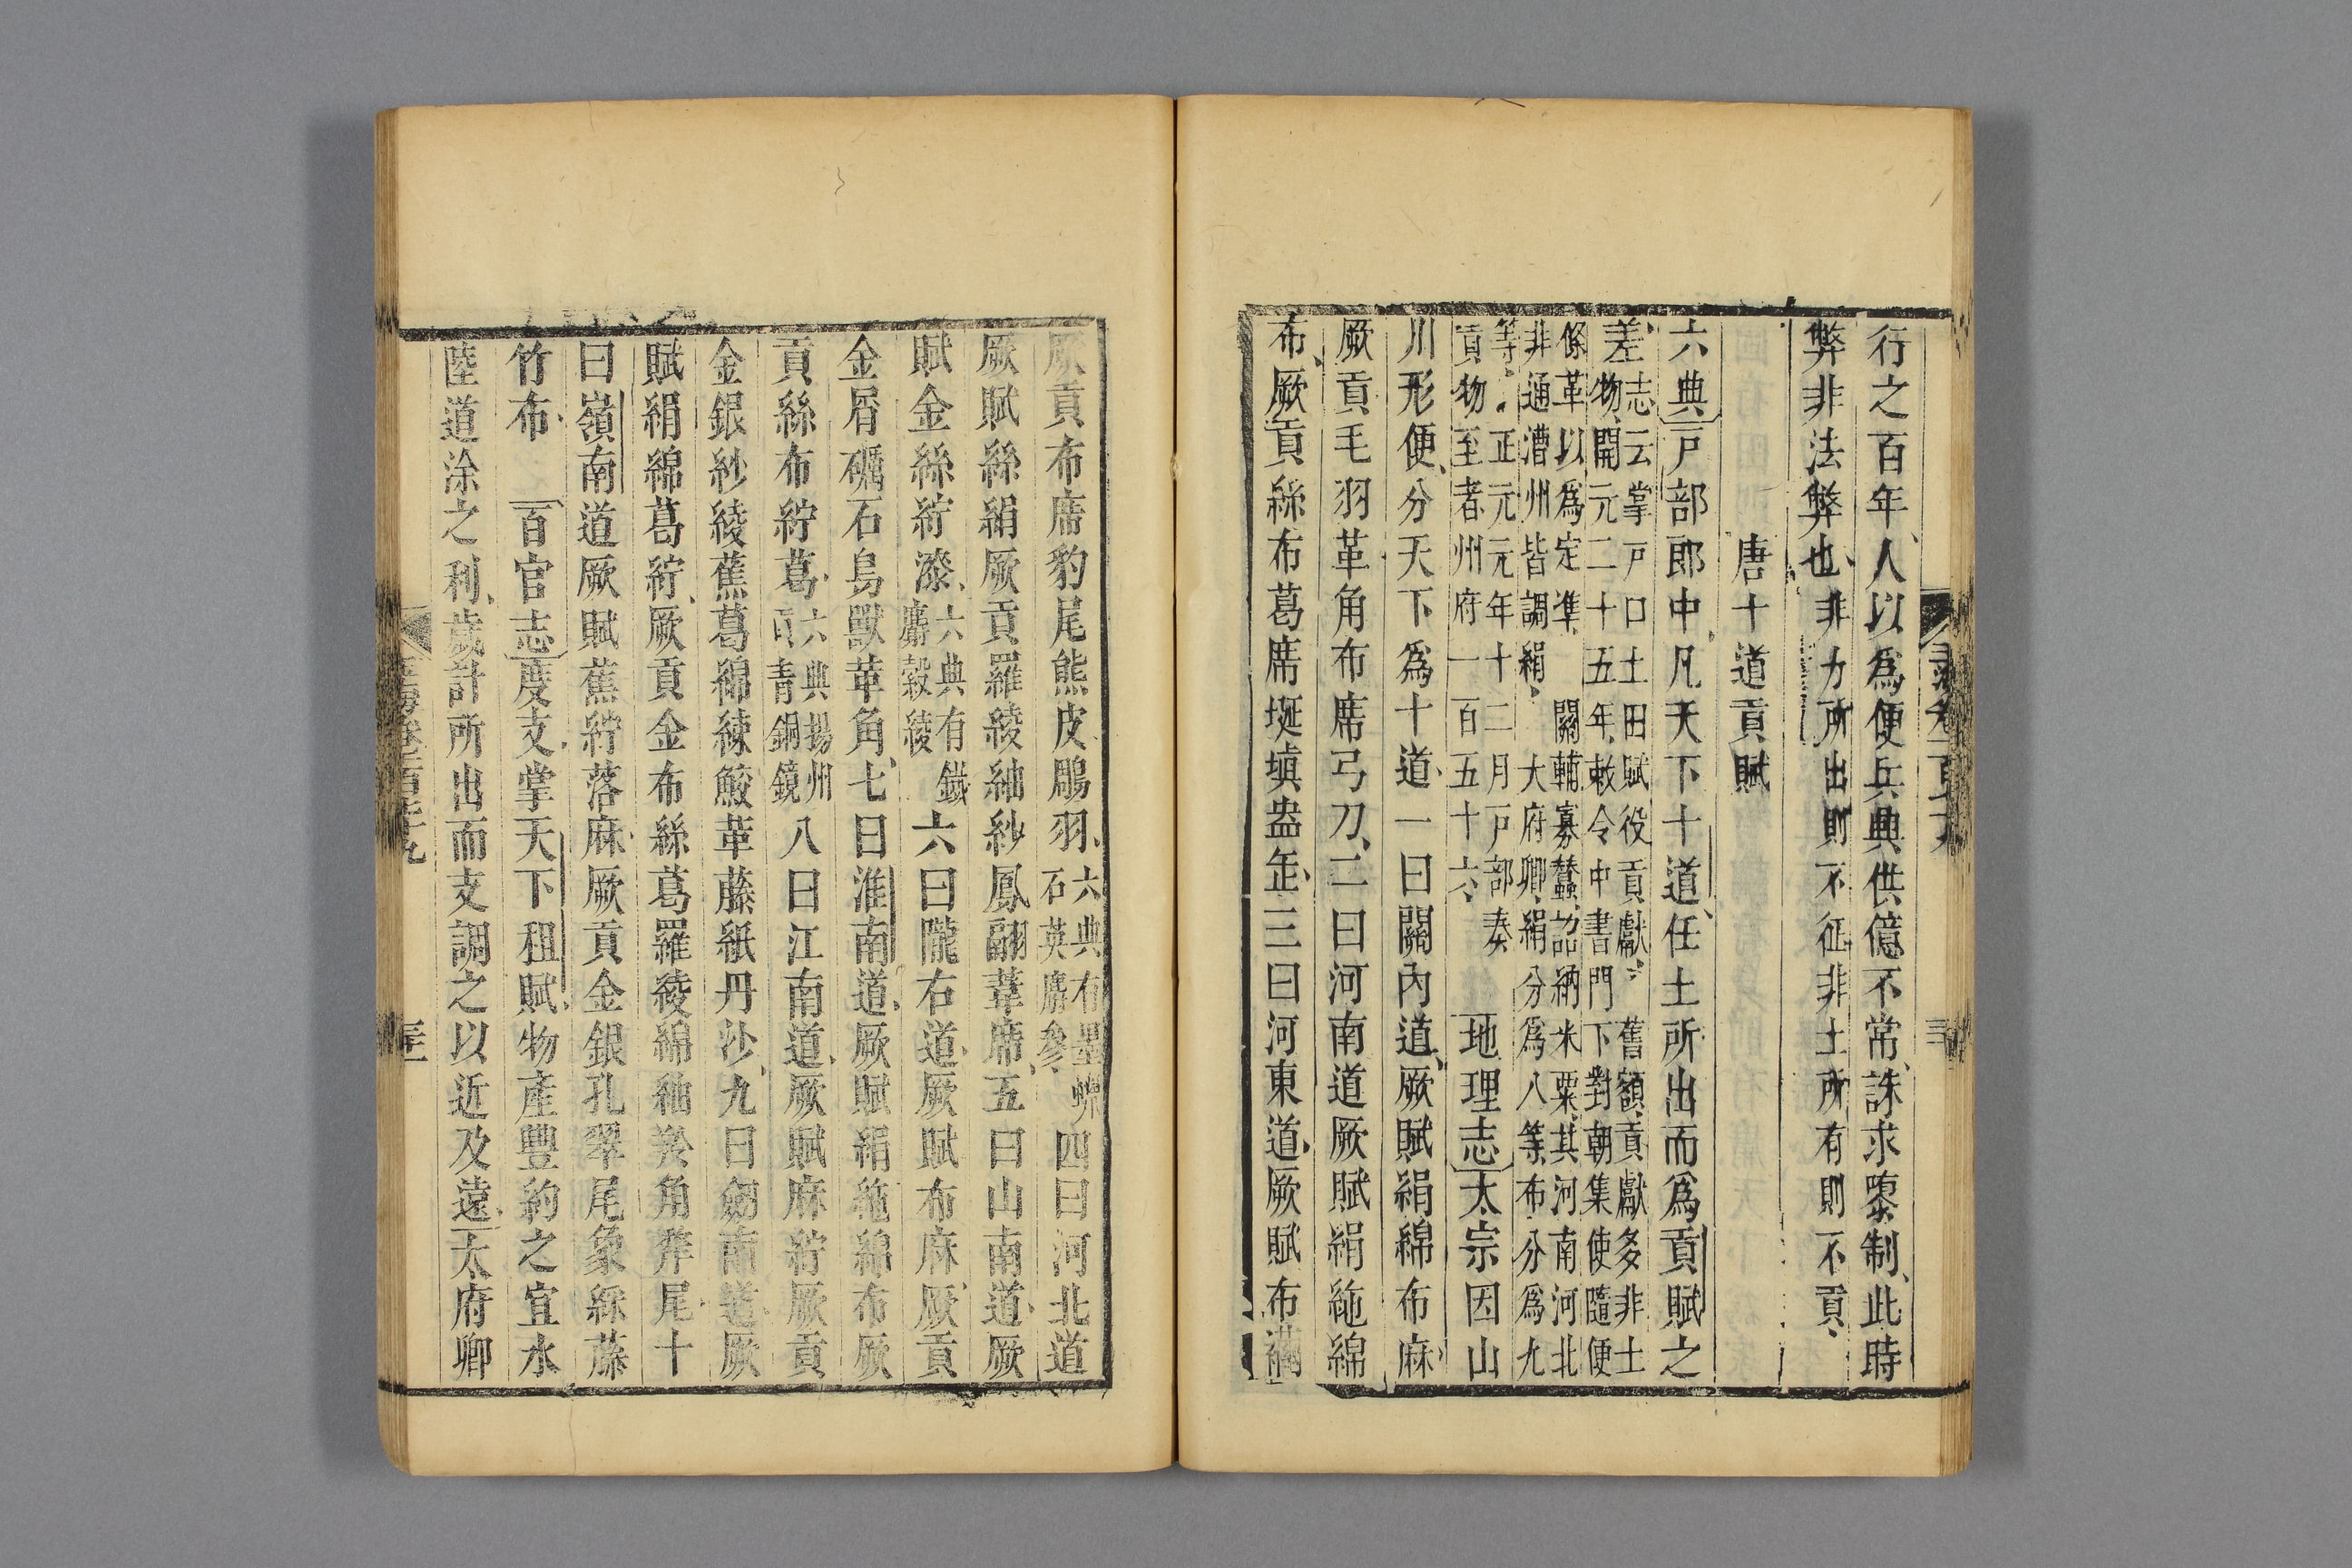 行之百年人以為便兵興供億不常誅求隳制此時
弊非法弊也非力所出則不征非土所有則不貢
唐十道貢賦
六典戸部郎中凡天下十道任土所出而為貢賦之
差志云掌戸口土田賦役貢獻 舊額貢獻多非土
物開元二十五年敕令中書門下對朝集使隨便
條革以為定準 關輔寡蠶詔納米粟其河南河北
非通漕州皆調絹 大府卿絹分為八等布分為九
等 正元元年十二月戸部奏
貢物至者州府一百五十六 地理志太宗因山
川形便分天下為十道一曰關內道厥賦絹綿布麻
厥貢毛羽革角布席弓刀二曰河南道厥賦絹絁綿
布厥貢絲布葛席埏埴盎缶三曰河東道厥賦布襺
厥貢布席豹尾熊皮鵰羽六典有墨蠟石英麝參四曰河北道
厥賦絲絹厥貢羅綾紬紗鳳翮葦席五曰山南道厥
賦金絲紵漆六典有鐵麝縠綾六曰隴右道厥賦布麻厥貢
金屑礪石鳥獸革角七曰淮南道厥賦絹絁綿布厥
貢絲布紵葛六典揚州貢青銅鏡八曰江南道厥賦麻紵厥貢
金銀紗綾蕉葛綿練鮫革藤紙丹沙九曰劒南道厥
賦絹綿葛紵厥貢金布絲葛羅綾綿紬羚角犛尾十
曰嶺南道厥賦蕉紵落麻厥貢金銀孔翠尾象綵藤
竹布 百官志度支掌天下租賦物產豐約之宜水
陸道涂之利歲計所出而支調之以近及遠太府卿